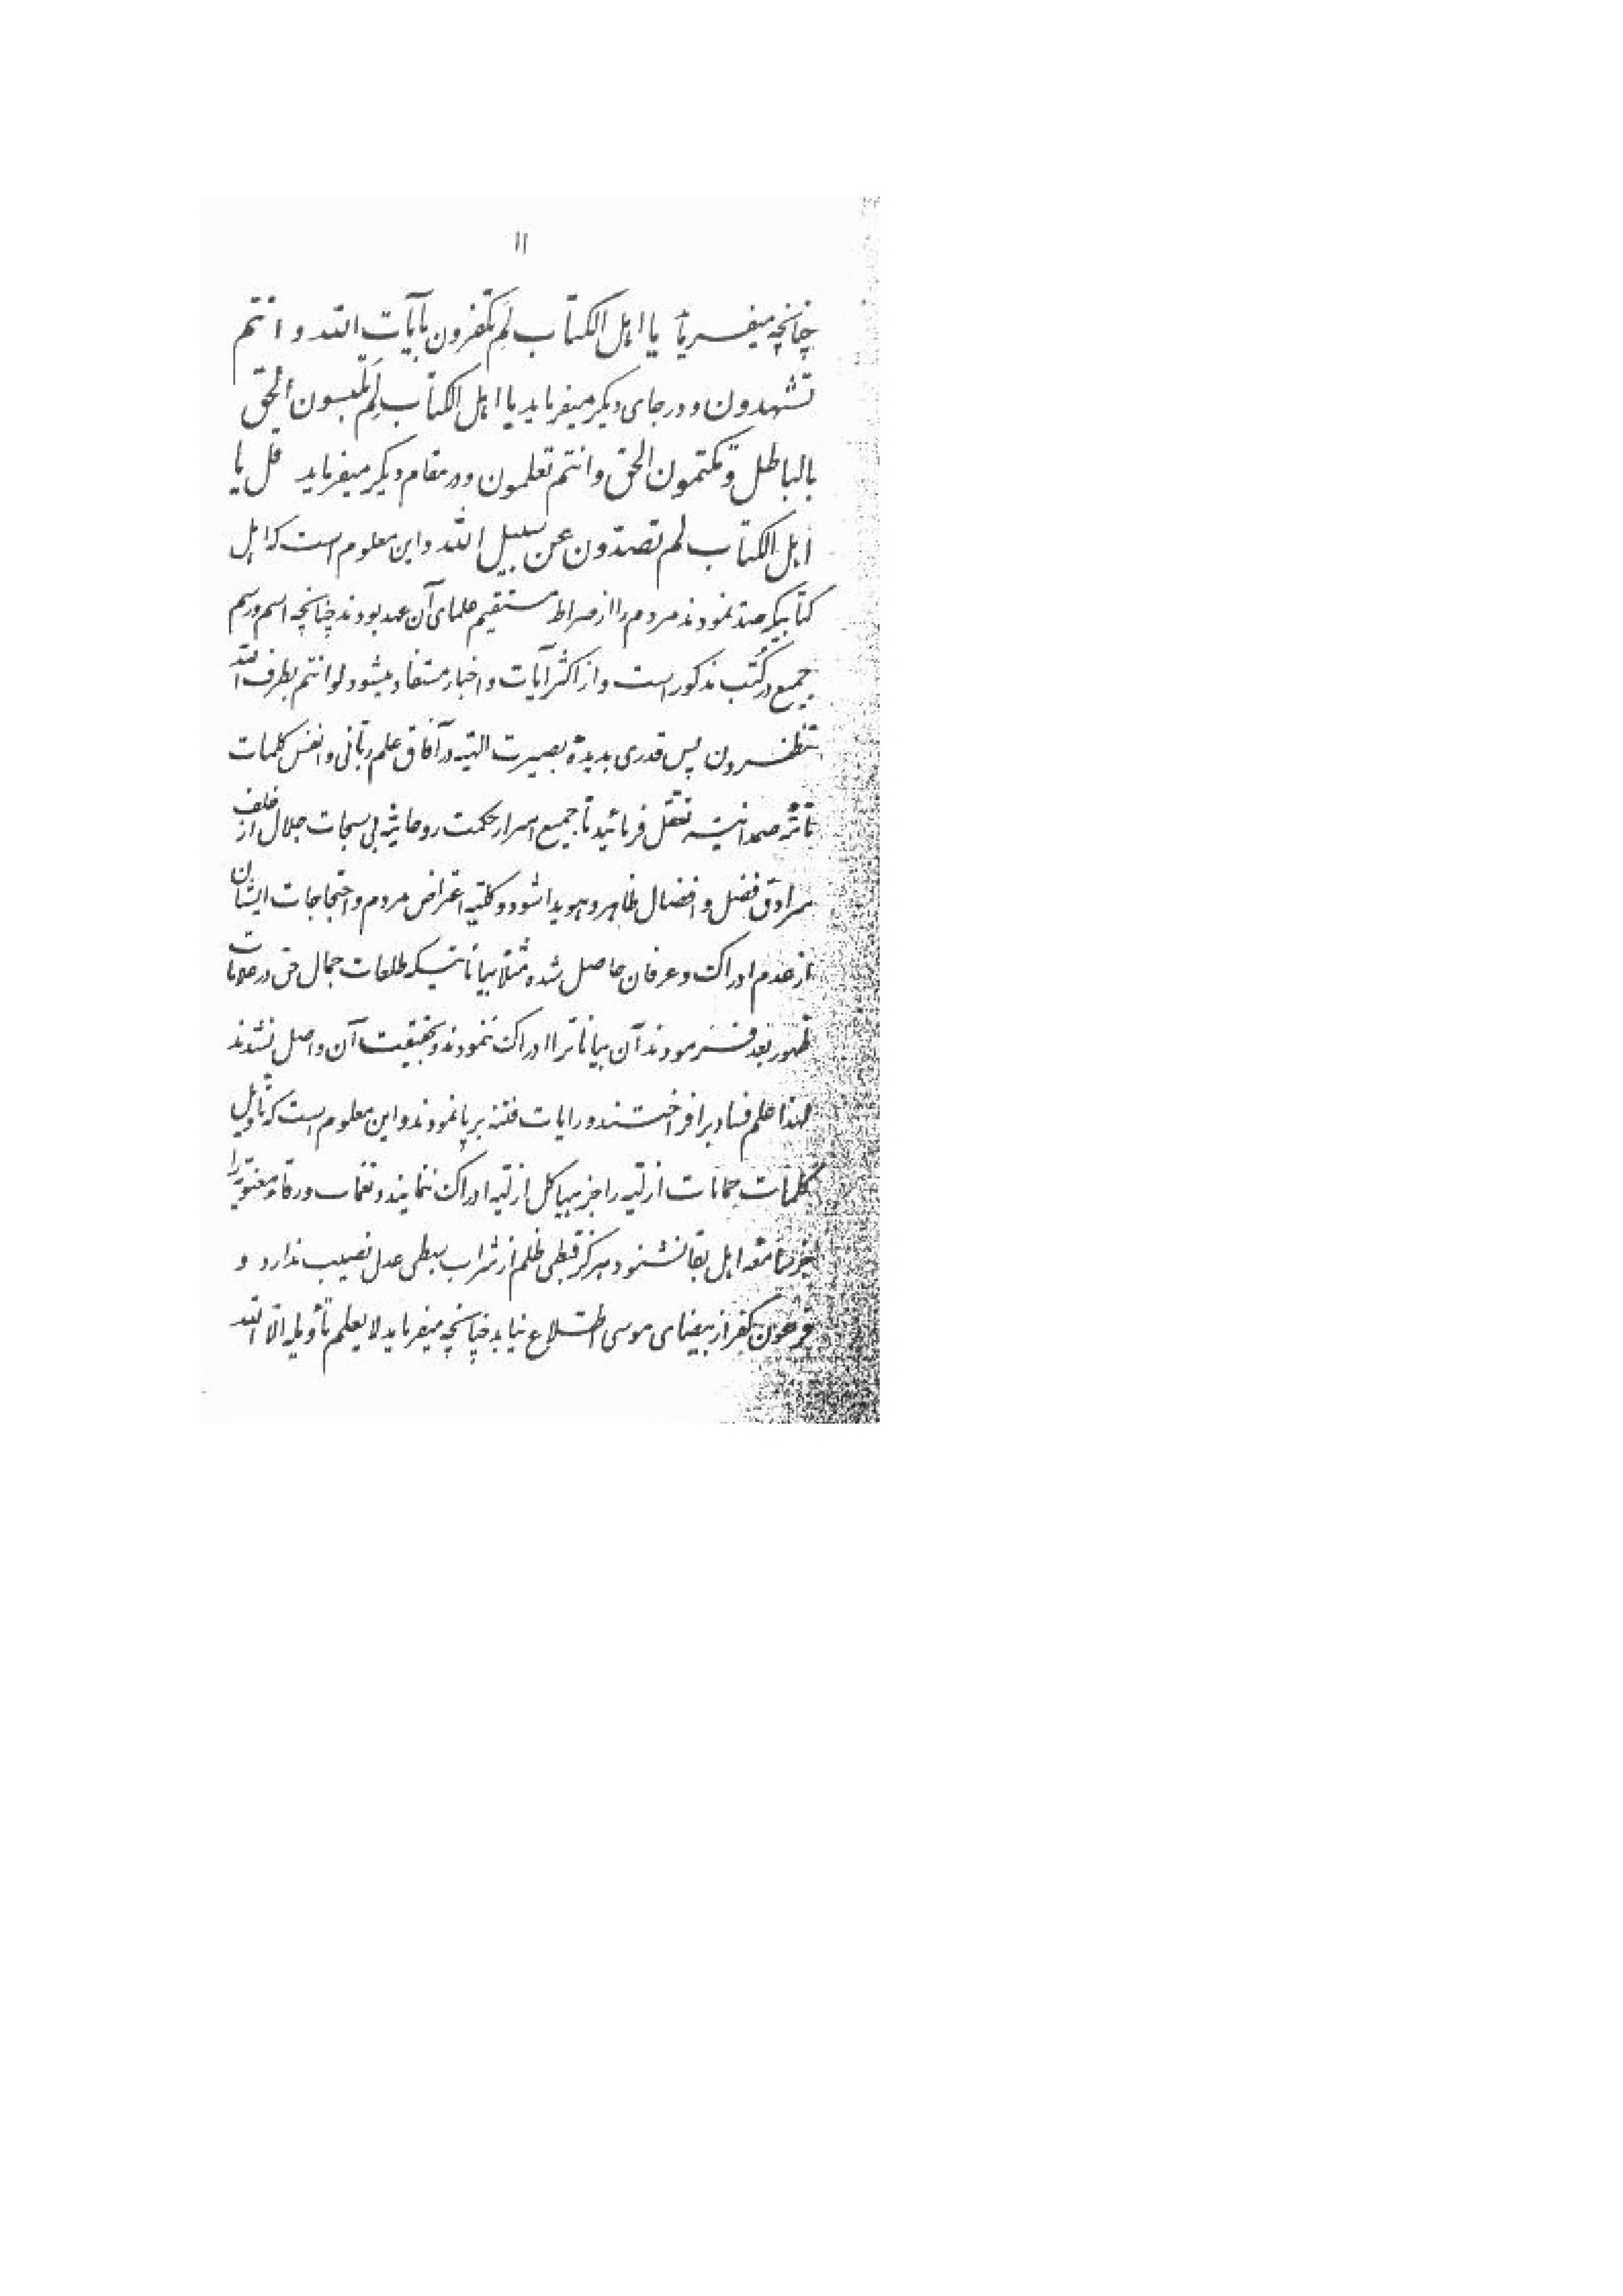 ۱۱
چنانچه میفرماید یا اهل الکتاب لم تکفرون بآیات الله و انتم
تشهدون و در جای دیگر میفرماید یا اهل الکتاب لم تلبسون الحق
بالباطل و تکتمون الحق و انتم تعلمون و در مقام دیگر میفرماید قل یا
اهل الکتاب لم تصدّون عن سبیل الله و این معلوم است که اهل
کتابیکه صدّ نمودند مردم را از صراط مستقیم علمای آن عهد بودند چنانچه اسم و رسم
جمیع در کُتب مذکور است و از اکثر آیات و اخبار مستفاد میشود لو انتم بطرف الله
تنظرون پس قدری بدیدهٔ بصیرت الهیّه در آفاق علم ربّانی و انفس کلمات
تامّهٔ صمدانیّه تعقّل فرمائید تا جمیع اسرار حکمت روحانیّه بی سبحات جلال از خلف
سرادق فضل و افضال ظاهر و هویدا شود و کلّیّه اعتراض مردم و احتجاجات ایشان
از عدم ادراک و عرفان حاصل شده مثلاً بیاناتیکه طلعات جمال حق در علامات
ظهور بعد فرمودند آن بیاناترا ادراک ننمودند و بحقیقت آن واصل نشدند
لهذا علم فساد برافراختند و رایات فتنه برپا نمودند و این معلوم است که تأویل
کلمات حمامات ازلیّه را جز هیاکل ازلیّه ادراک ننمایند و نغمات ورقاء معنویّه را
جز سامعهٔ اهل بقا نشنود هرگز قبطی ظلم از شراب سبطی عدل نصیب ندارد و
فرعون کفر از بیضای موسی اطّلاع نیابد چنانچه میفرماید لا یعلم تأویله الّا الله